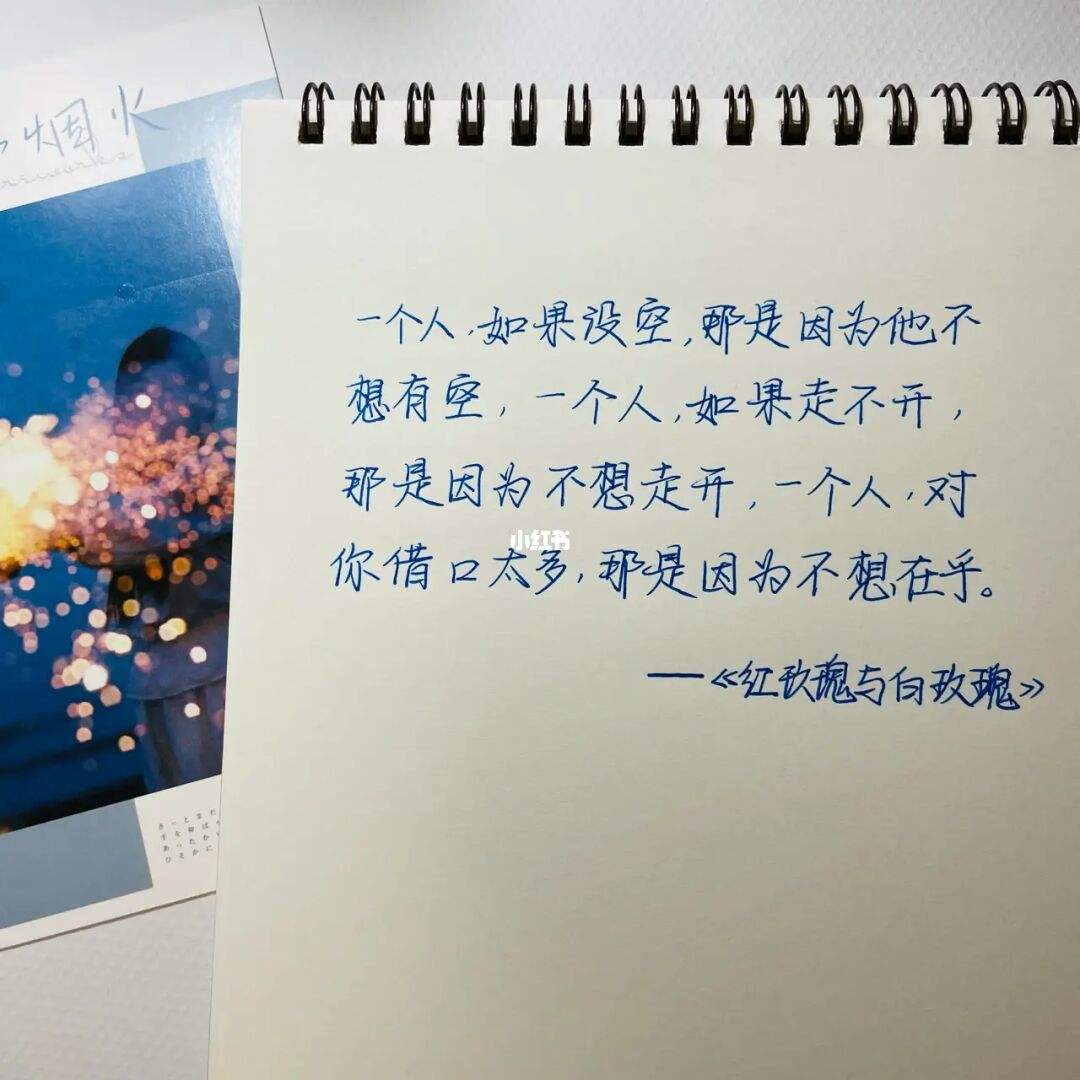 烟火
一个人，如果没空，那是因为他不
想有空，一个人，如果走不开，
那是因为不想走开，一个人，对
你借口太多，那是因为不想在乎。
——《红玫瑰与白玫瑰》
小红书